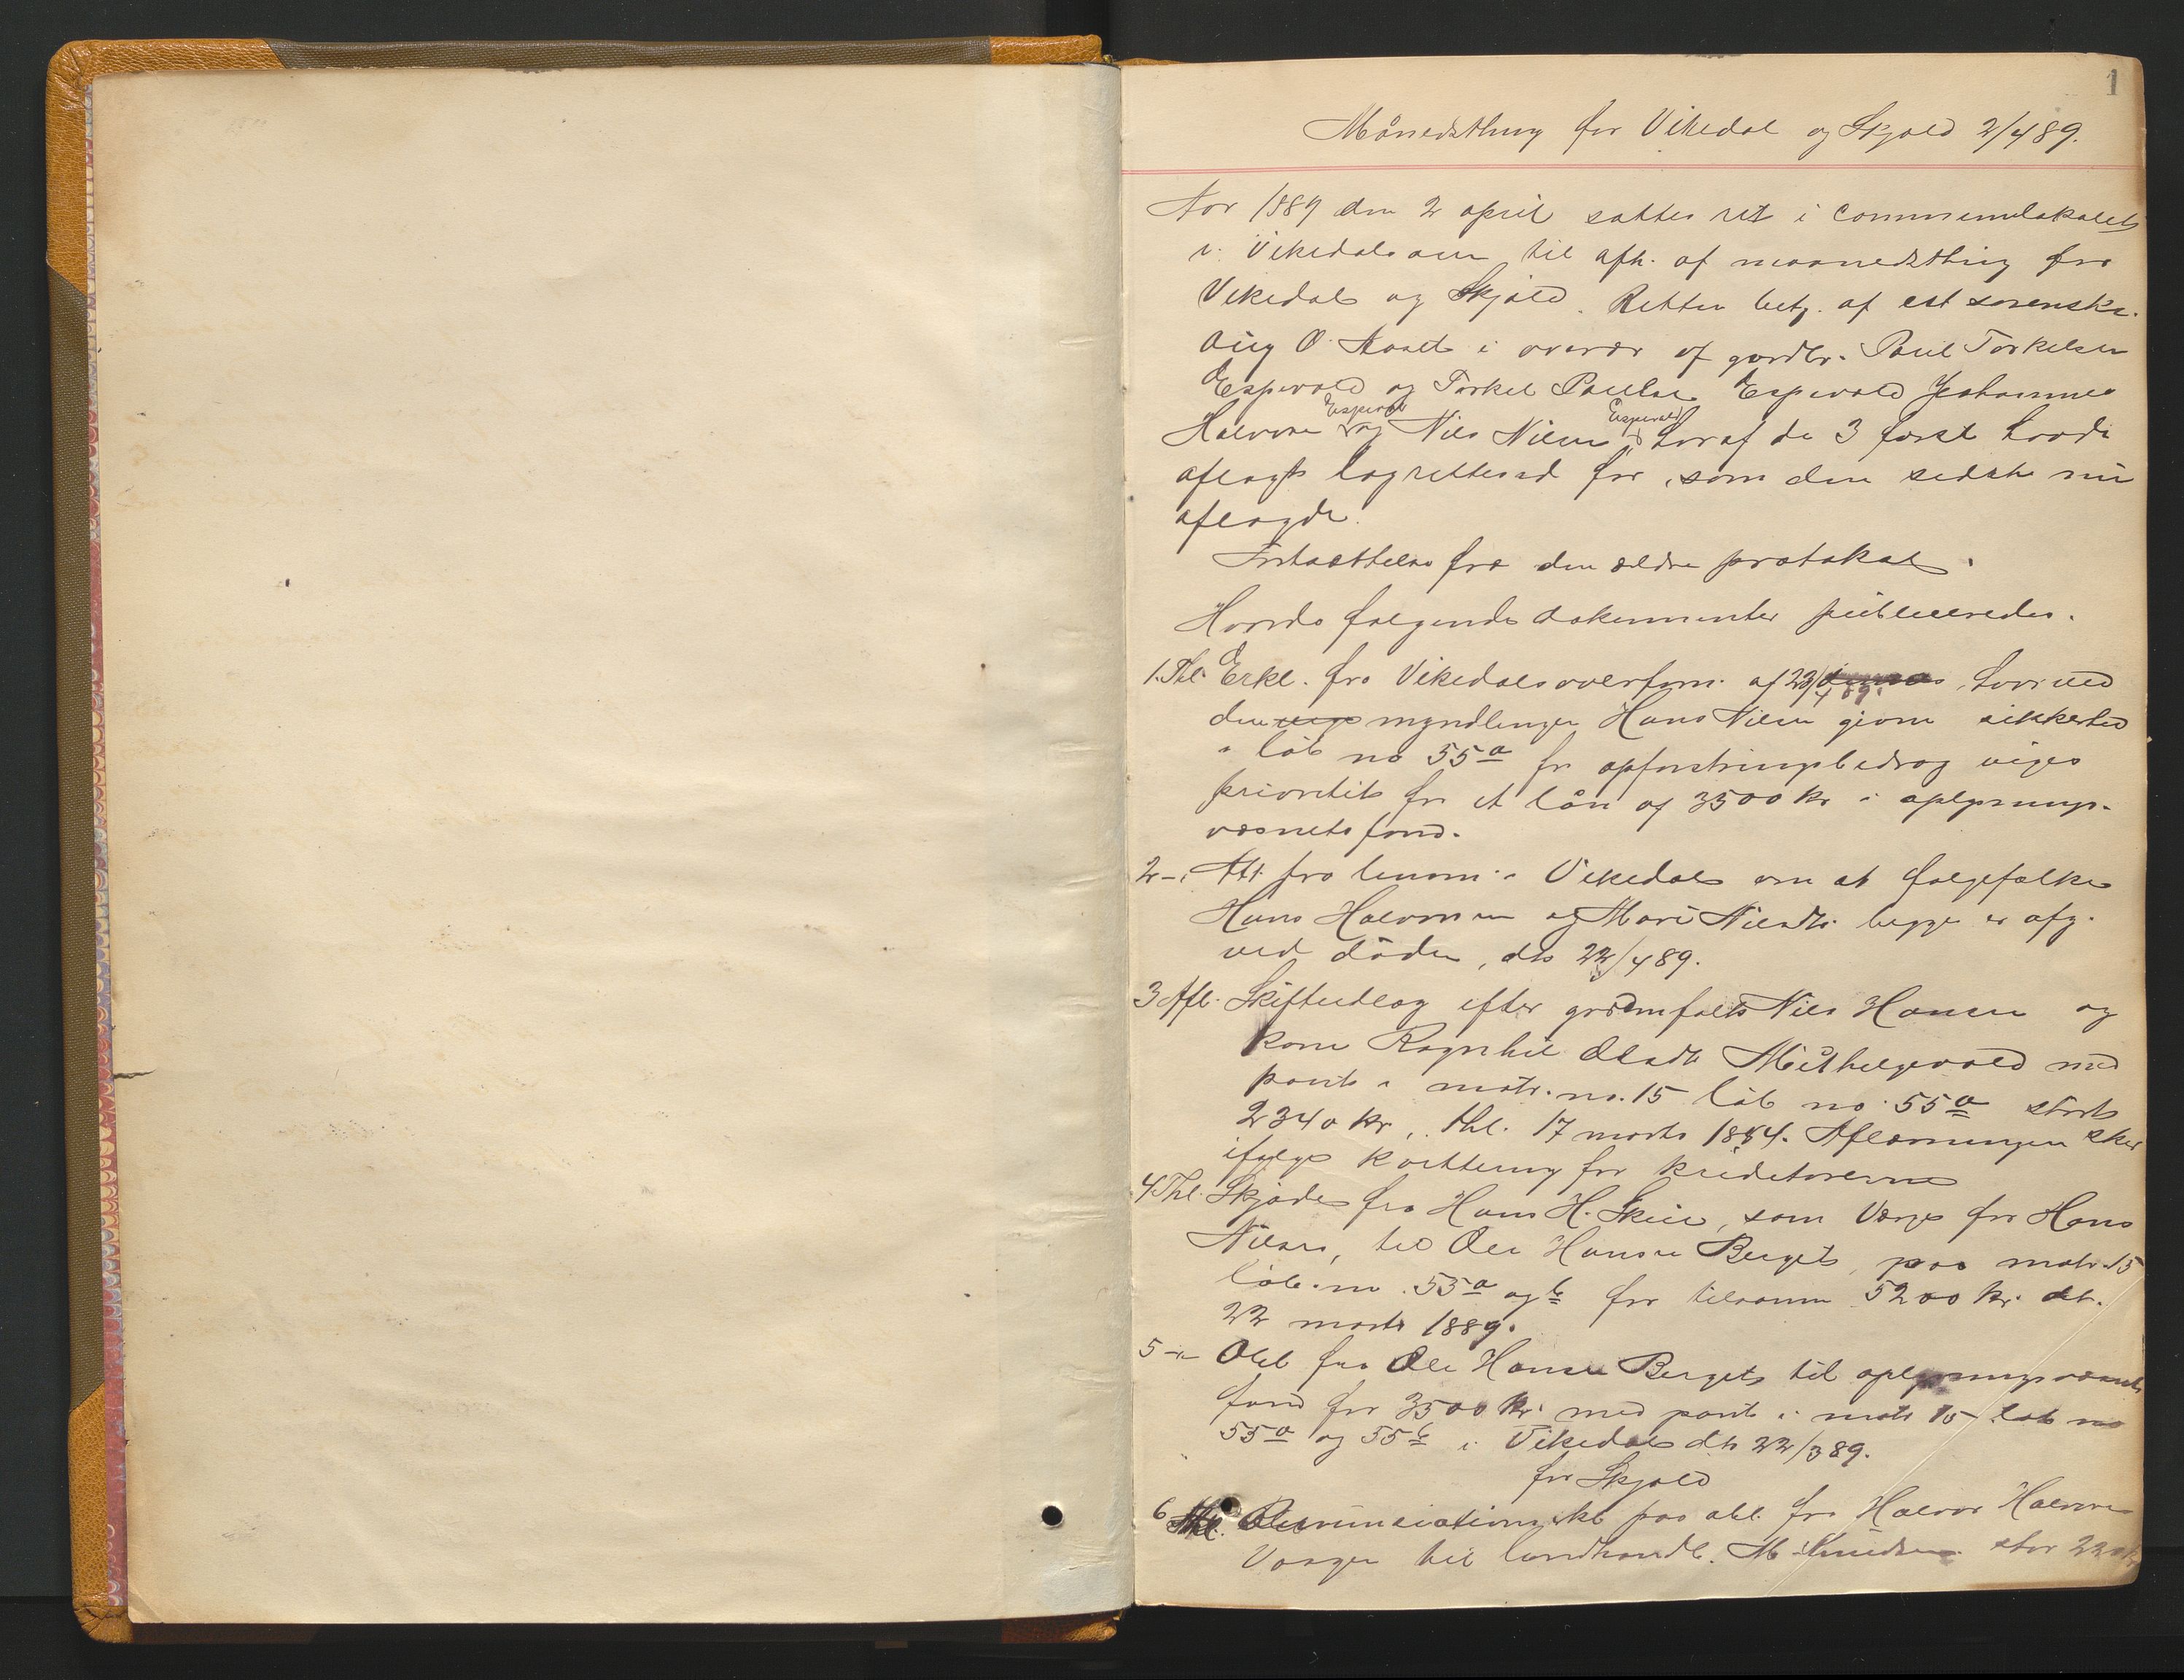 1
Månedsthing for Vikedal og Skjold 2/4 89.
Aar 1889 den 2 april sattes ret i Communelokalet
i Vikedalsøen til afh. af maanedsthing for
Vikedal og Skjold. Retten betj. af cst sorenskr.
Aug O. i overvær af gaardbr. Poul Torkelsen
Espevold og Torkel Poulsen Espevold Johannes
Halvorsen Espevold og Nils Nilsen Espevold, hvoraf de 3 første havde
aflagt lagretteed før, som den sidste nu
aflagde.
Fortsættelse fra den ældre protokol.
Hvorda følgende dokumenter publiceredes.
1. Thl. Erkl. fra Vikedals overform. af 23/4 89. hvorved
den myndlingen Hans Nilsen givne sikkerhed
i løb no 55a for opfostringsbedrag viges
prioritet for et lån af 3500 kr i oplysnings-
væsnets fond.
2 -. Att. fra lensm. i Vikedal om at følgefolke
Hans Halvorsen og Mari Nilsdtr. begge er afg.
ved døden, dt 22/4 89.
3 Afl. Skifteudlæg efter gaardmfolk Nils Hansen og
kone Ragnhil Olsdtr Mithelgevold med
pant i matr. no. 15 løb no 55a stort
2340 kr, thl. 17 marts 1884. Aflæsningen sker
ifølge kvittering fra kreditorerne
4 Thl. Skjøde fra Hans H. Skeie, som Værge for Hans
Nilsen, til Ole Hansen Berget, paa matr. 15
løb. no. 55a og b for tilsamm 5200 kr. dt.
22 marts 1889.
5 -"- Obl fra Ole Hansen Berget til oplysningsvæsnets
fond for 3500 kr. med pant i matr 15 løb no
55a og 55b i Vikedal dt 22/3 89.
for Skjold
6 Thl. Renunciations kl paa obl. fra Halvor Halvorsen
Vaage til landhandl. M. Knudsen stor 220 kr